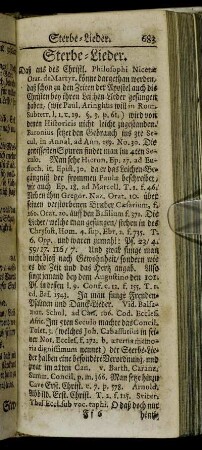 Sterbe-Lieder. 683
Sterbe-Lieder.
Daß aus des Christl. Philosophi Nicetæ
Orat. de Martyr. könne dargethan werden,
daß schon zu den Zeiten der Apostel auch die
Christen bey ihren Leichen Lieder gesungen
haben, (wie Paul. Aringhus will in Roma
Subterr. l. 1. c. 19. §. 3. p. 61.) wird von
neuen Historicis nicht leicht zugestanden.
Baronius setzet den Gebrauch ins 3te Se-
cul. in Annal. ad Ann. 189. No. 30. Die
gewissesten Spuren findet man im 4ten Secu-
lo. Man sehe Hieron. Ep. 27. ad Eu-
stoch. it. Epist. 30. da er das Leichen-Be-
gängniß der frommen Paula beschreibet,
wie auch Ep. 18. ad Marcell. T. 1. f. 46.
Neben ihm Gregor. Naz. Orat. 10. über
seinen verstorbenen Bruder Cæsarium, f.
166. Orat. 20. auf den Basilium f. 371. Die
Lieder / welche man gesungen / stehen in des
Chrysost. Hom. 4. sup. Ebr. 2. f. 735. T.
6. Opp. und waren gemahl: Ps. 23 / 4.
59 / 17. 116 / 7. Und zwar sunge man
nicht bloß nach Gewohnheit sondern wie
es die Zeit und das Hertz angab. Also
singt niemand bey dem Augustino den 101.
Ps. wordens l. 9. Conf. c. 12. f. 155. T. 1.
ed. Bas. 1542. Ja man sunge Freuden-
Psalmen und Danck-Lieder. Vid. Balsa-
mon. Schol. ad Can. 106. Cod. Eccles.
Afric. Im 7ten Seculo machte das Concil.
Tolet. 3. (welches Joh. Cabassutius in sei-
ner Not. Eccles. f. 272. b. averterta memoria
dignissimum nennet) der Sterbe-Lie-
der halben eine besondere Verordnung, und
zwar im 22ten Can. v. Barth. Caranz.
Summ. Concil. p. m. 366. Man setze hinzu
Cave Erst. Christ. c. 7. p. 578. Arnold
Abbild. Erst. Christ. T. 2. f. 115. Svicer.
Thes. Eccl. sub voc.
O daß doch nur